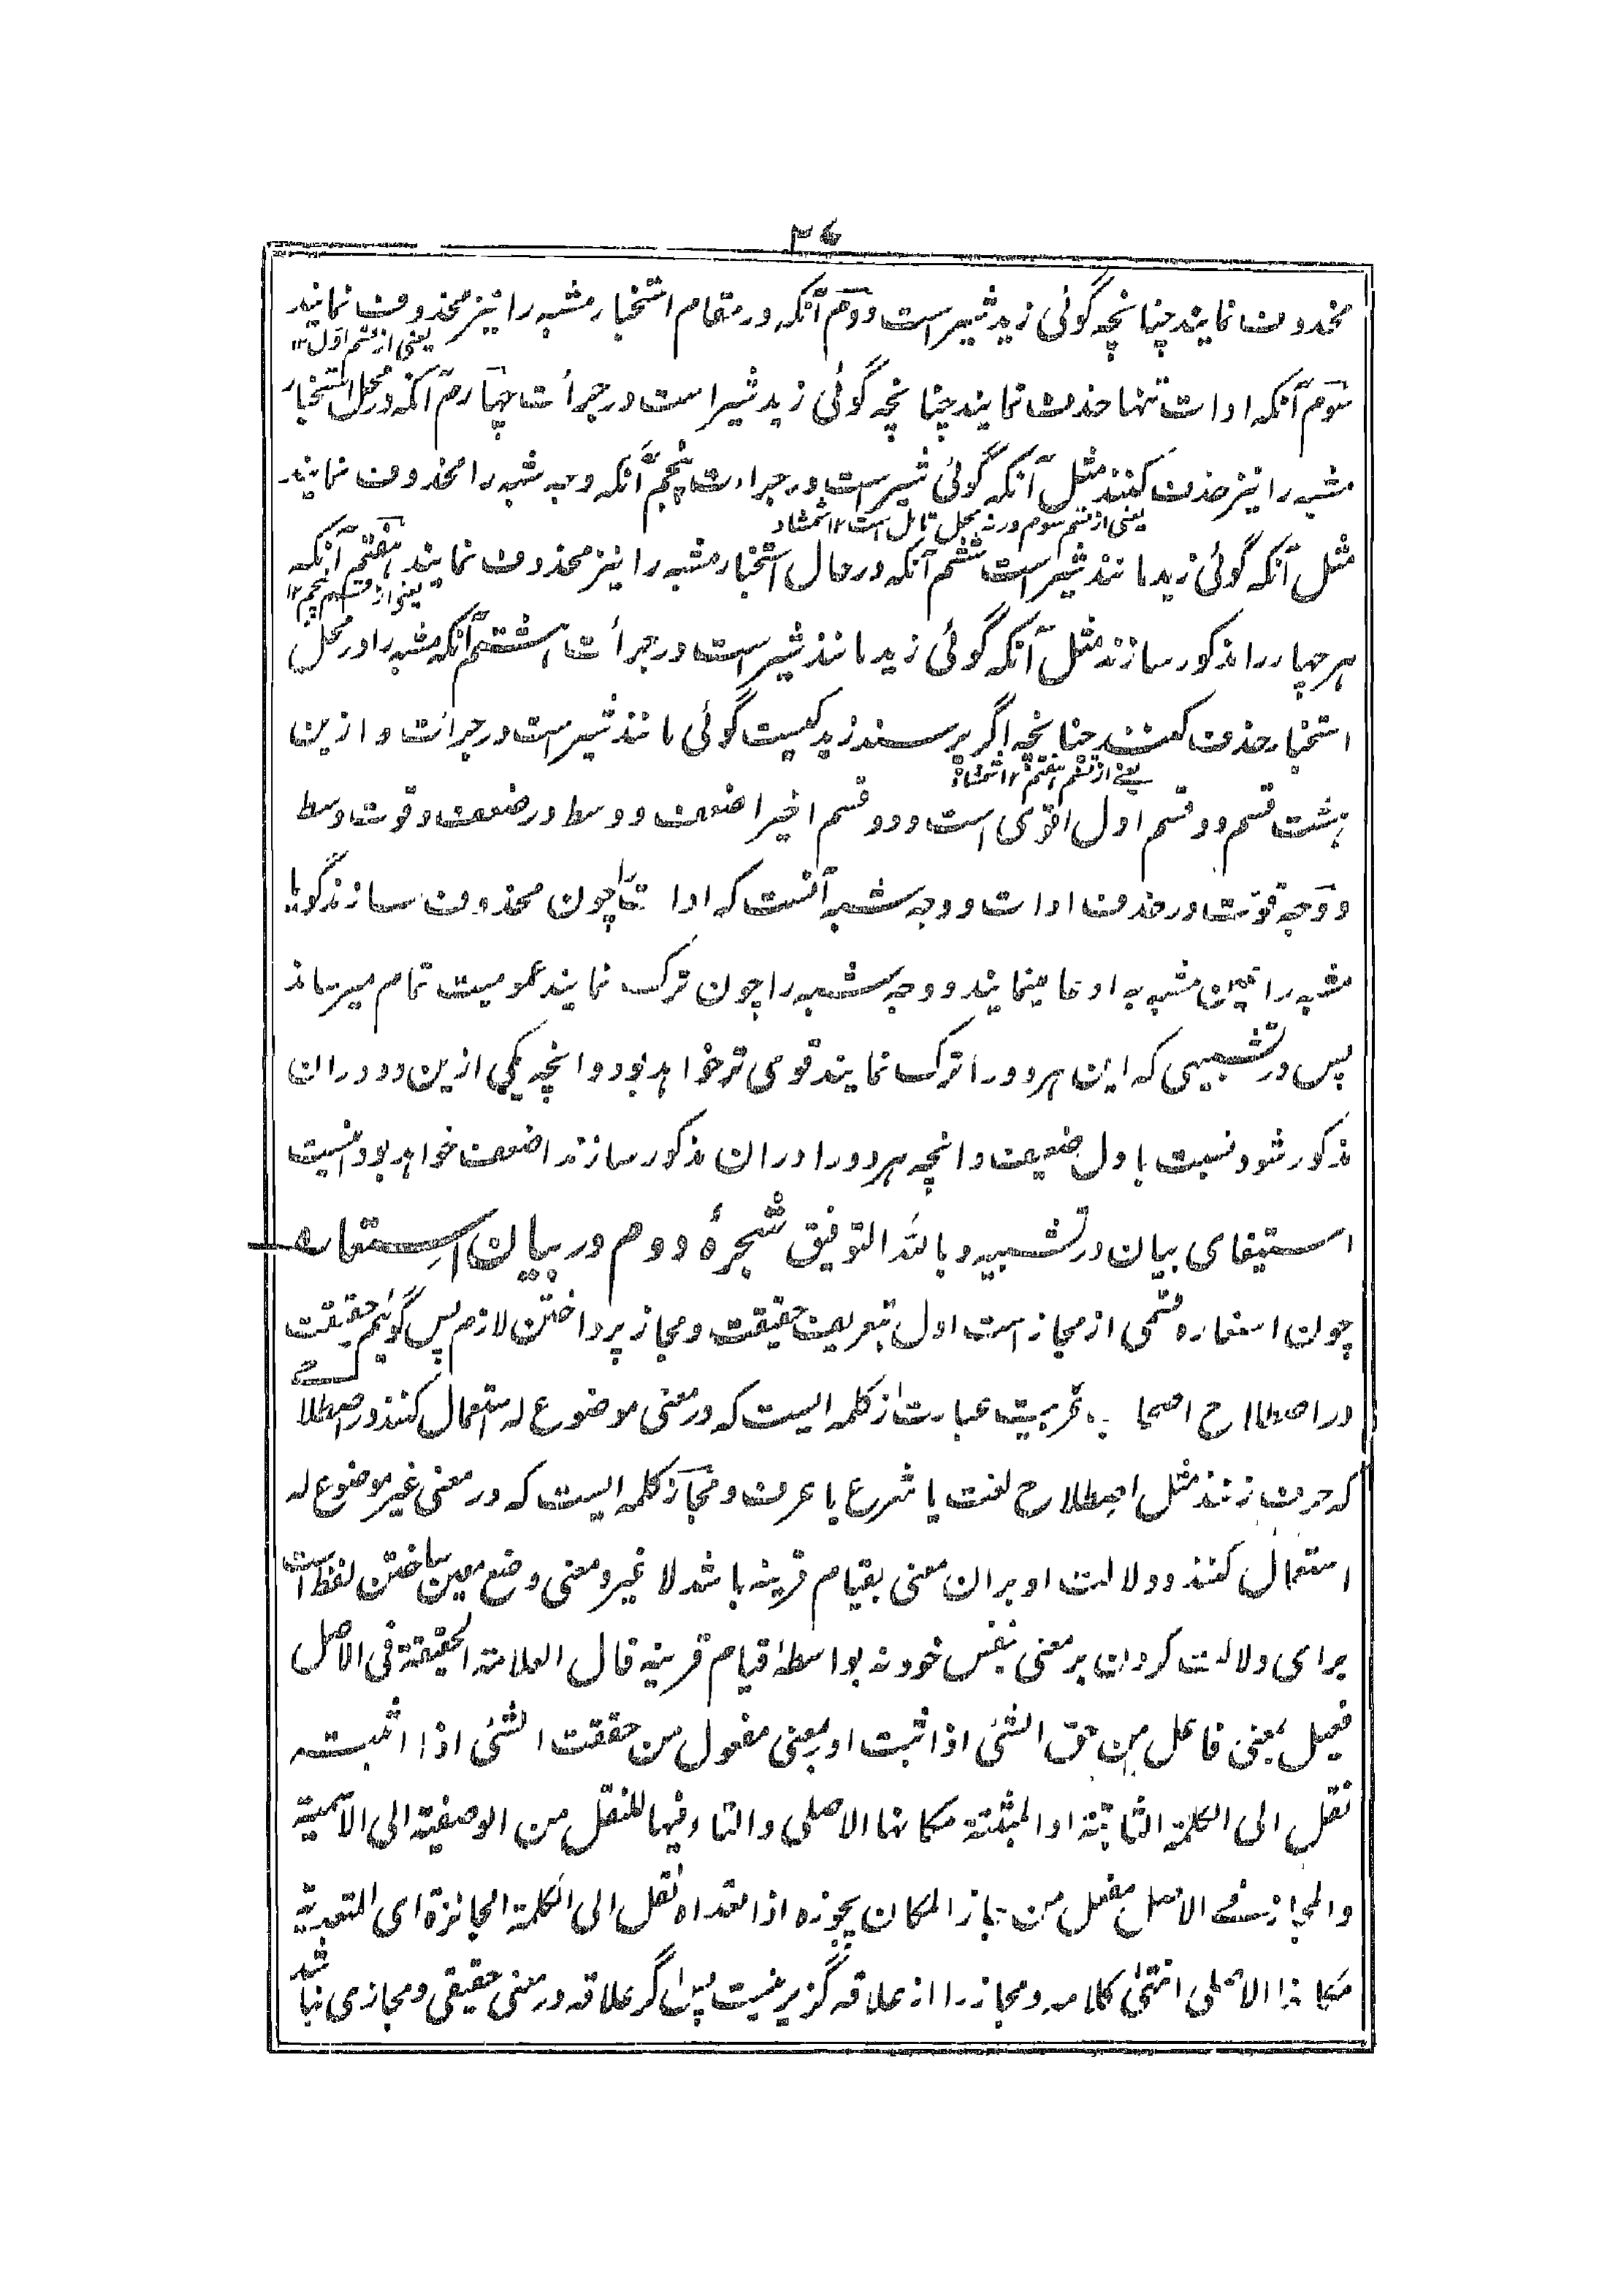 ۳۶
محذوف نمایند چنانچه گوئی زید شیر است دوم آنکه در مقام استخبار مشبه را نیز محذوف نمایند
یعنی از قسم اول ۱۲
سوم آنکه ادات تنها حذف نمایند چنانچه گوئی زید شیر است در جرأت چهارم آنکه در محل استخبار
مشبه را نیز حذف کنند مثل آنکه گوئی شیر است در جراءت پنجم آنکه وجه شبه را محذوف نمایند
یعنی از قسم سوم ورنه محل تامل است ۱۲ شمشاد
مثل آنکه گوئی زید مانند شیر است ششم آنکه در حال استخبار مشبه را نیز محذوف نمایند هفتم آنکه
یعنی از قسم پنجم ۱۲
هر چهار را مذکور سازند مثل آنکه گوئی زید مانند شیر است در جرأت هشتم آنکه مشبه را در محل
استخبار حذف کنند چنانچه اگر پرسند زید کیست گوئی مانند شیر است در جرأت و ازین
یعنی از قسم هفتم ۱۲ شمشاد
هشت قسم دو قسم اول اقوی است و دو قسم اخیر اضعف و وسط در ضعف و قوت وسط
و وجه قوت در حذف ادات و وجه شبه آنست که ادات را چون محذوف سازند گویا
مشبه را عین مشبه به ادعا مینمایند و وجه شبه را چون ترک نمایند عمومیت تمام میرساند
پس در تشبیهی که این هر دو را ترک نمایند قوی تر خواهد بود و انچه یکی ازین دو دران
مذکور شود نسبت باول ضعیف و انچه هر دو را دران مذکور سازند اضعف خواهد بود اینست
استیفای بیان در تشبیه و بالله التوفیق شجرۀ دوم در بیان استعاره
چون استعاره قسمی از مجاز است اول بتعریف حقیقت و مجاز پرداختن لازم پس گوئیم حقیقت
در اصطلاح اصحاب عربیت عبارت از کلمه ایست که در معنی موضوع له استعمال کنند در اصطلاحے
که حرف زنند مثل اصطلاح لغت یا شرع یا عرف و مجاز کلمه ایست که در معنی غیر موضوع له
استعمال کنند و دلالت او بران معنی بقیام قرینه باشد لا غیر و معنی وضع معین ساختن لفظ است
برای دلالت کردن بر معنی بنفس خود نه بواسطۀ قیام قرینه قال العلامة الحقیقة فی الاصل
فعیل بمعنی فاعل من حق الشئ اذا ثبت او بمعنی مفعول من حققت الشئ اذا اثبته
نقل الی الکلمة الثابتة او المثبتة مکانها الاصلی والتاء فیها للنقل من الوصفیة الی الاسمیة
والمجاز فے الاصل مفعل من جاز المکان یجوزه اذا تعداه نقل الی الکلمة الجائزة ای المتعدیة
مکانها الاصلی انتهی کلامه و مجاز را از علاقه گزیر نیست پس اگر علاقه در معنی حقیقی و مجازی نباشد